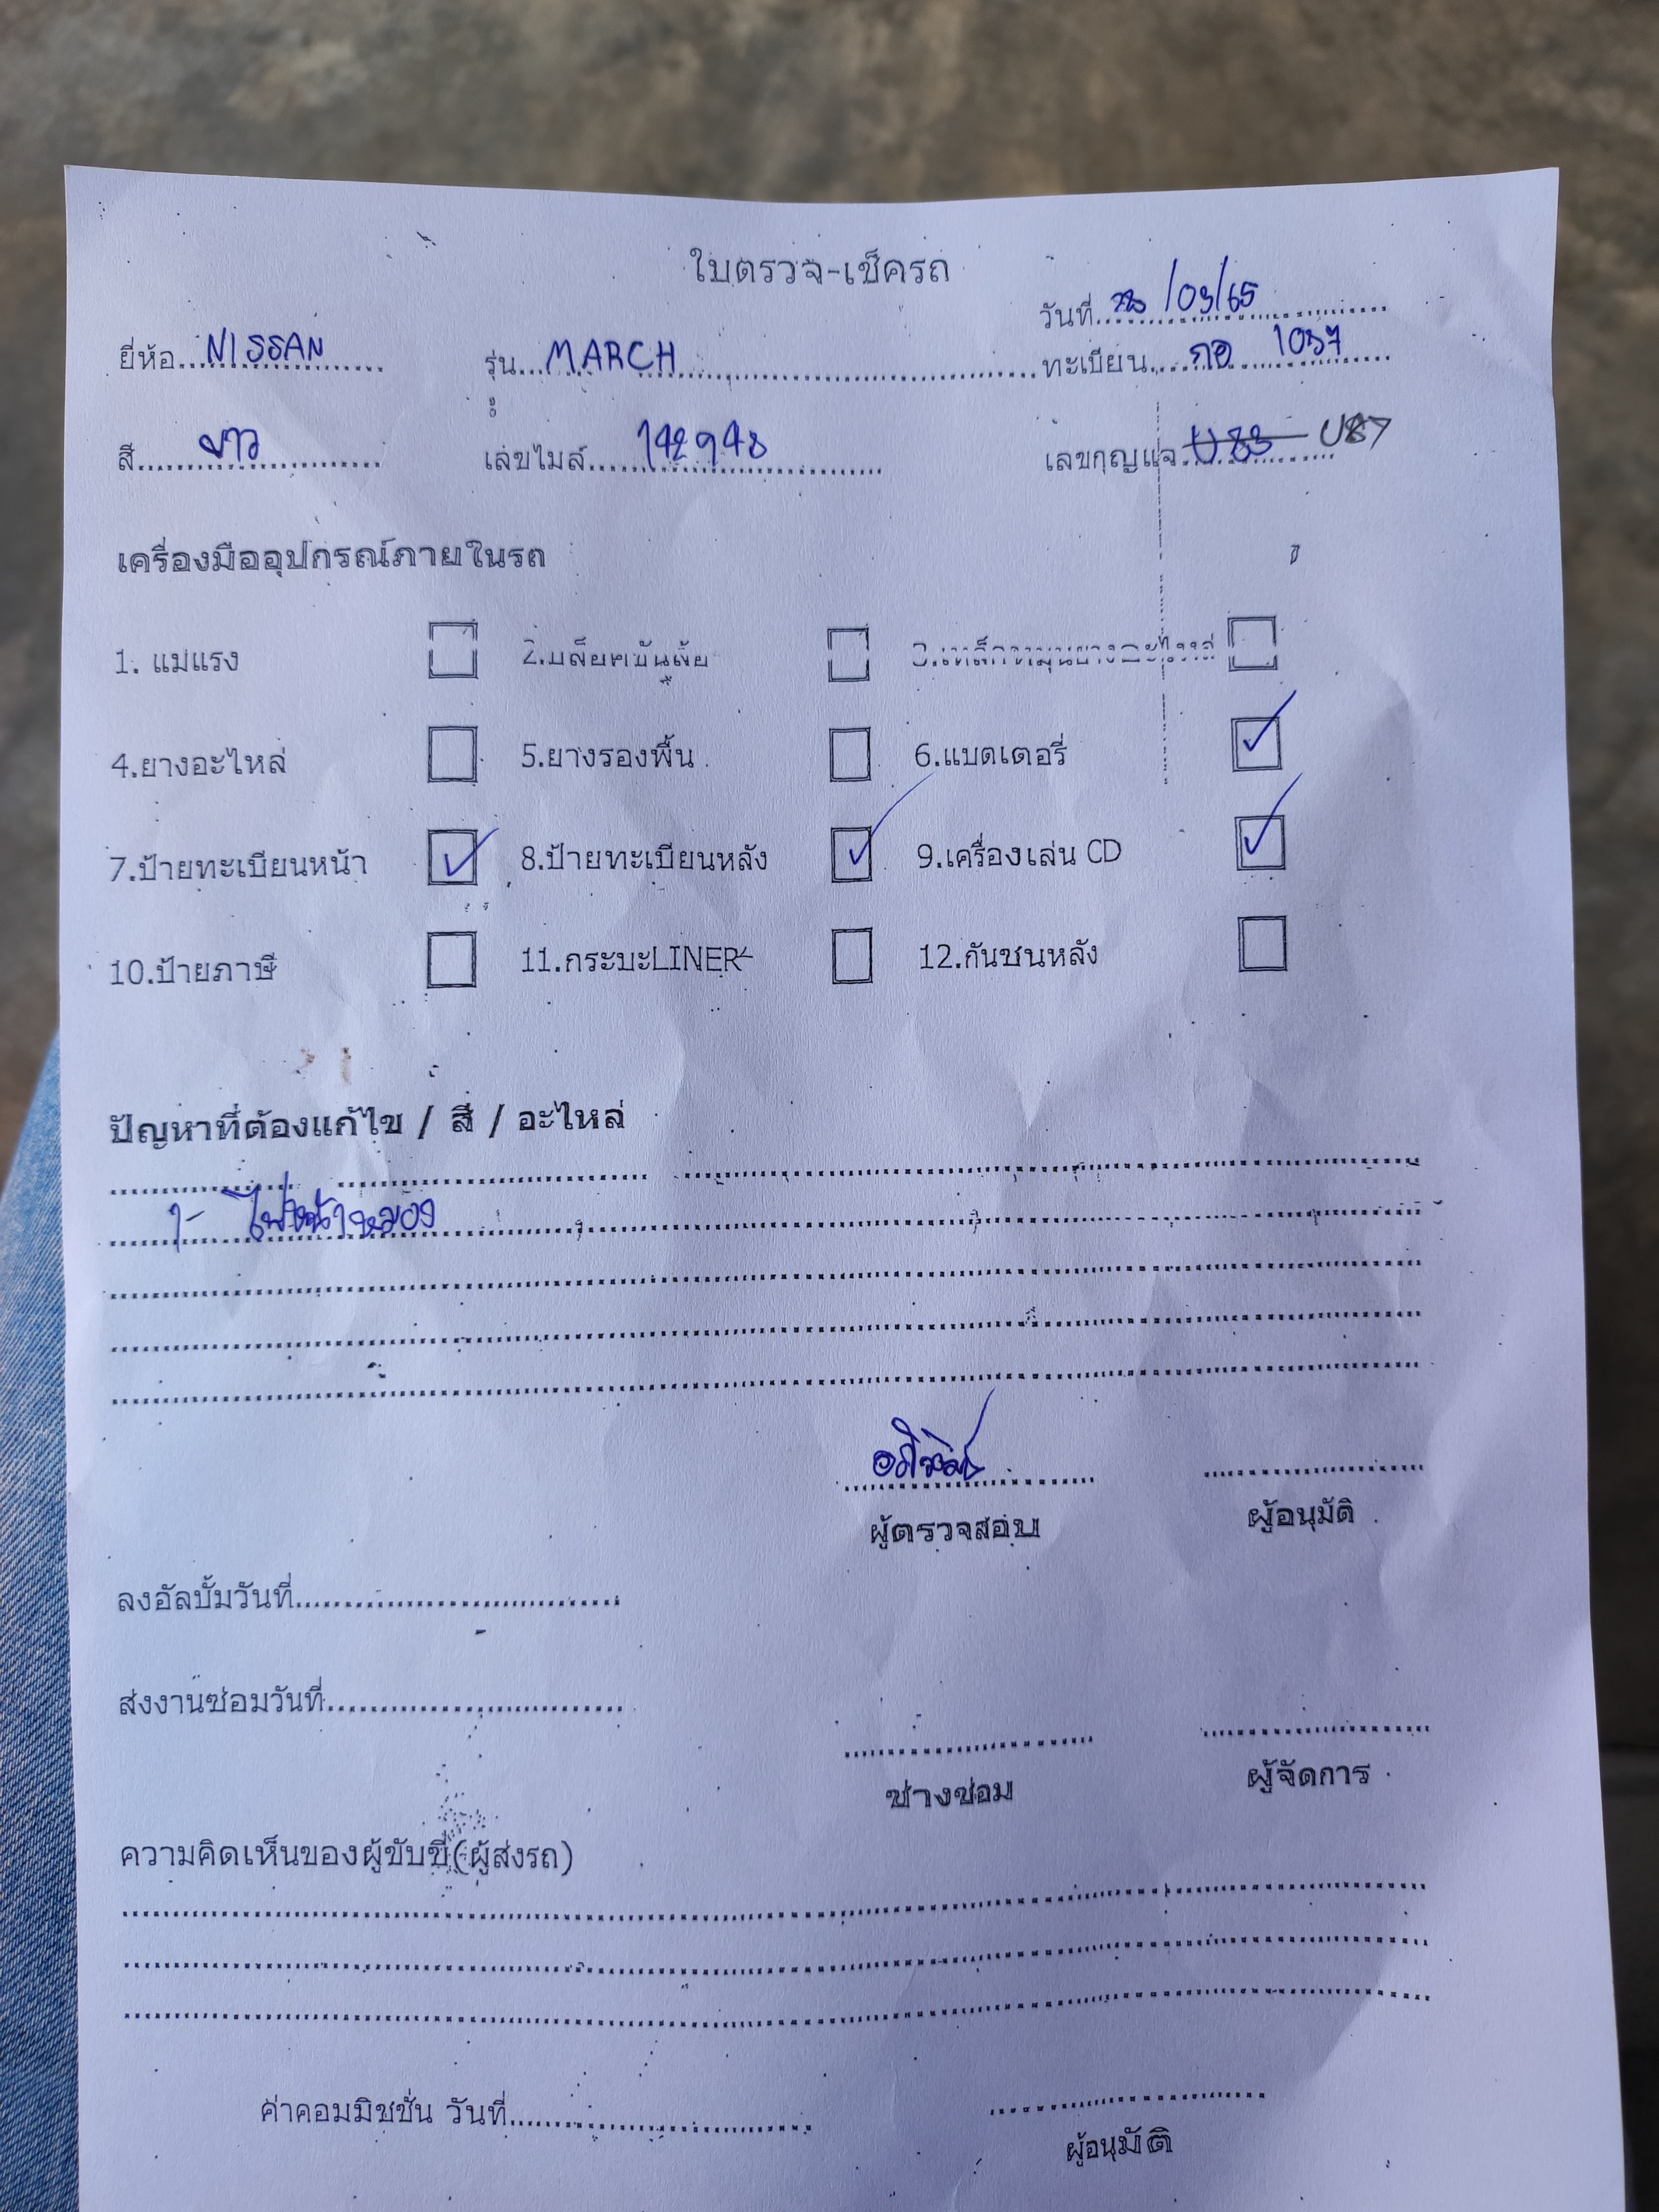 ใบตรวจ-เช็ครถ
วันที่ 28/03/65
ยี่ห้อ NISSAN รุ่น MARCH ทะเบียน กอ 1037
สี ขาว เลขไมล์ 142948 เลขกุญแจ U83 U87
เครื่องมืออุปกรณ์ภายในรถ
1. แม่แรง 2.บล็อคขันล้อ 3.เหล็กหมุนยางอะไหล่
4.ยางอะไหล่ 5.ยางรองพื้น 6.แบตเตอรี่
7.ป้ายทะเบียนหน้า 8.ป้ายทะเบียนหลัง 9.เครื่องเล่น CD
10.ป้ายภาษี 11.กระบะLINER 12.กันชนหลัง
ปัญหาที่ต้องแก้ไข / สี / อะไหล่
1- ไฟหน้าหมอง
ผู้ตรวจสอบ ผู้อนุมัติ
ลงอัลบั้มวันที่
ส่งงานซ่อมวันที่
ช่างซ่อม ผู้จัดการ
ความคิดเห็นของผู้ขับขี่(ผู้ส่งรถ)
ค่าคอมมิชชั่น วันที่
ผู้อนุมัติ